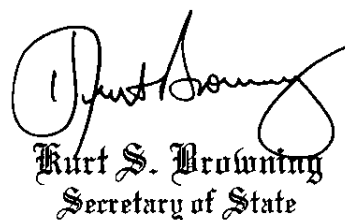 Kurt S. Browning
Kurt S. Browning
Secretary of State